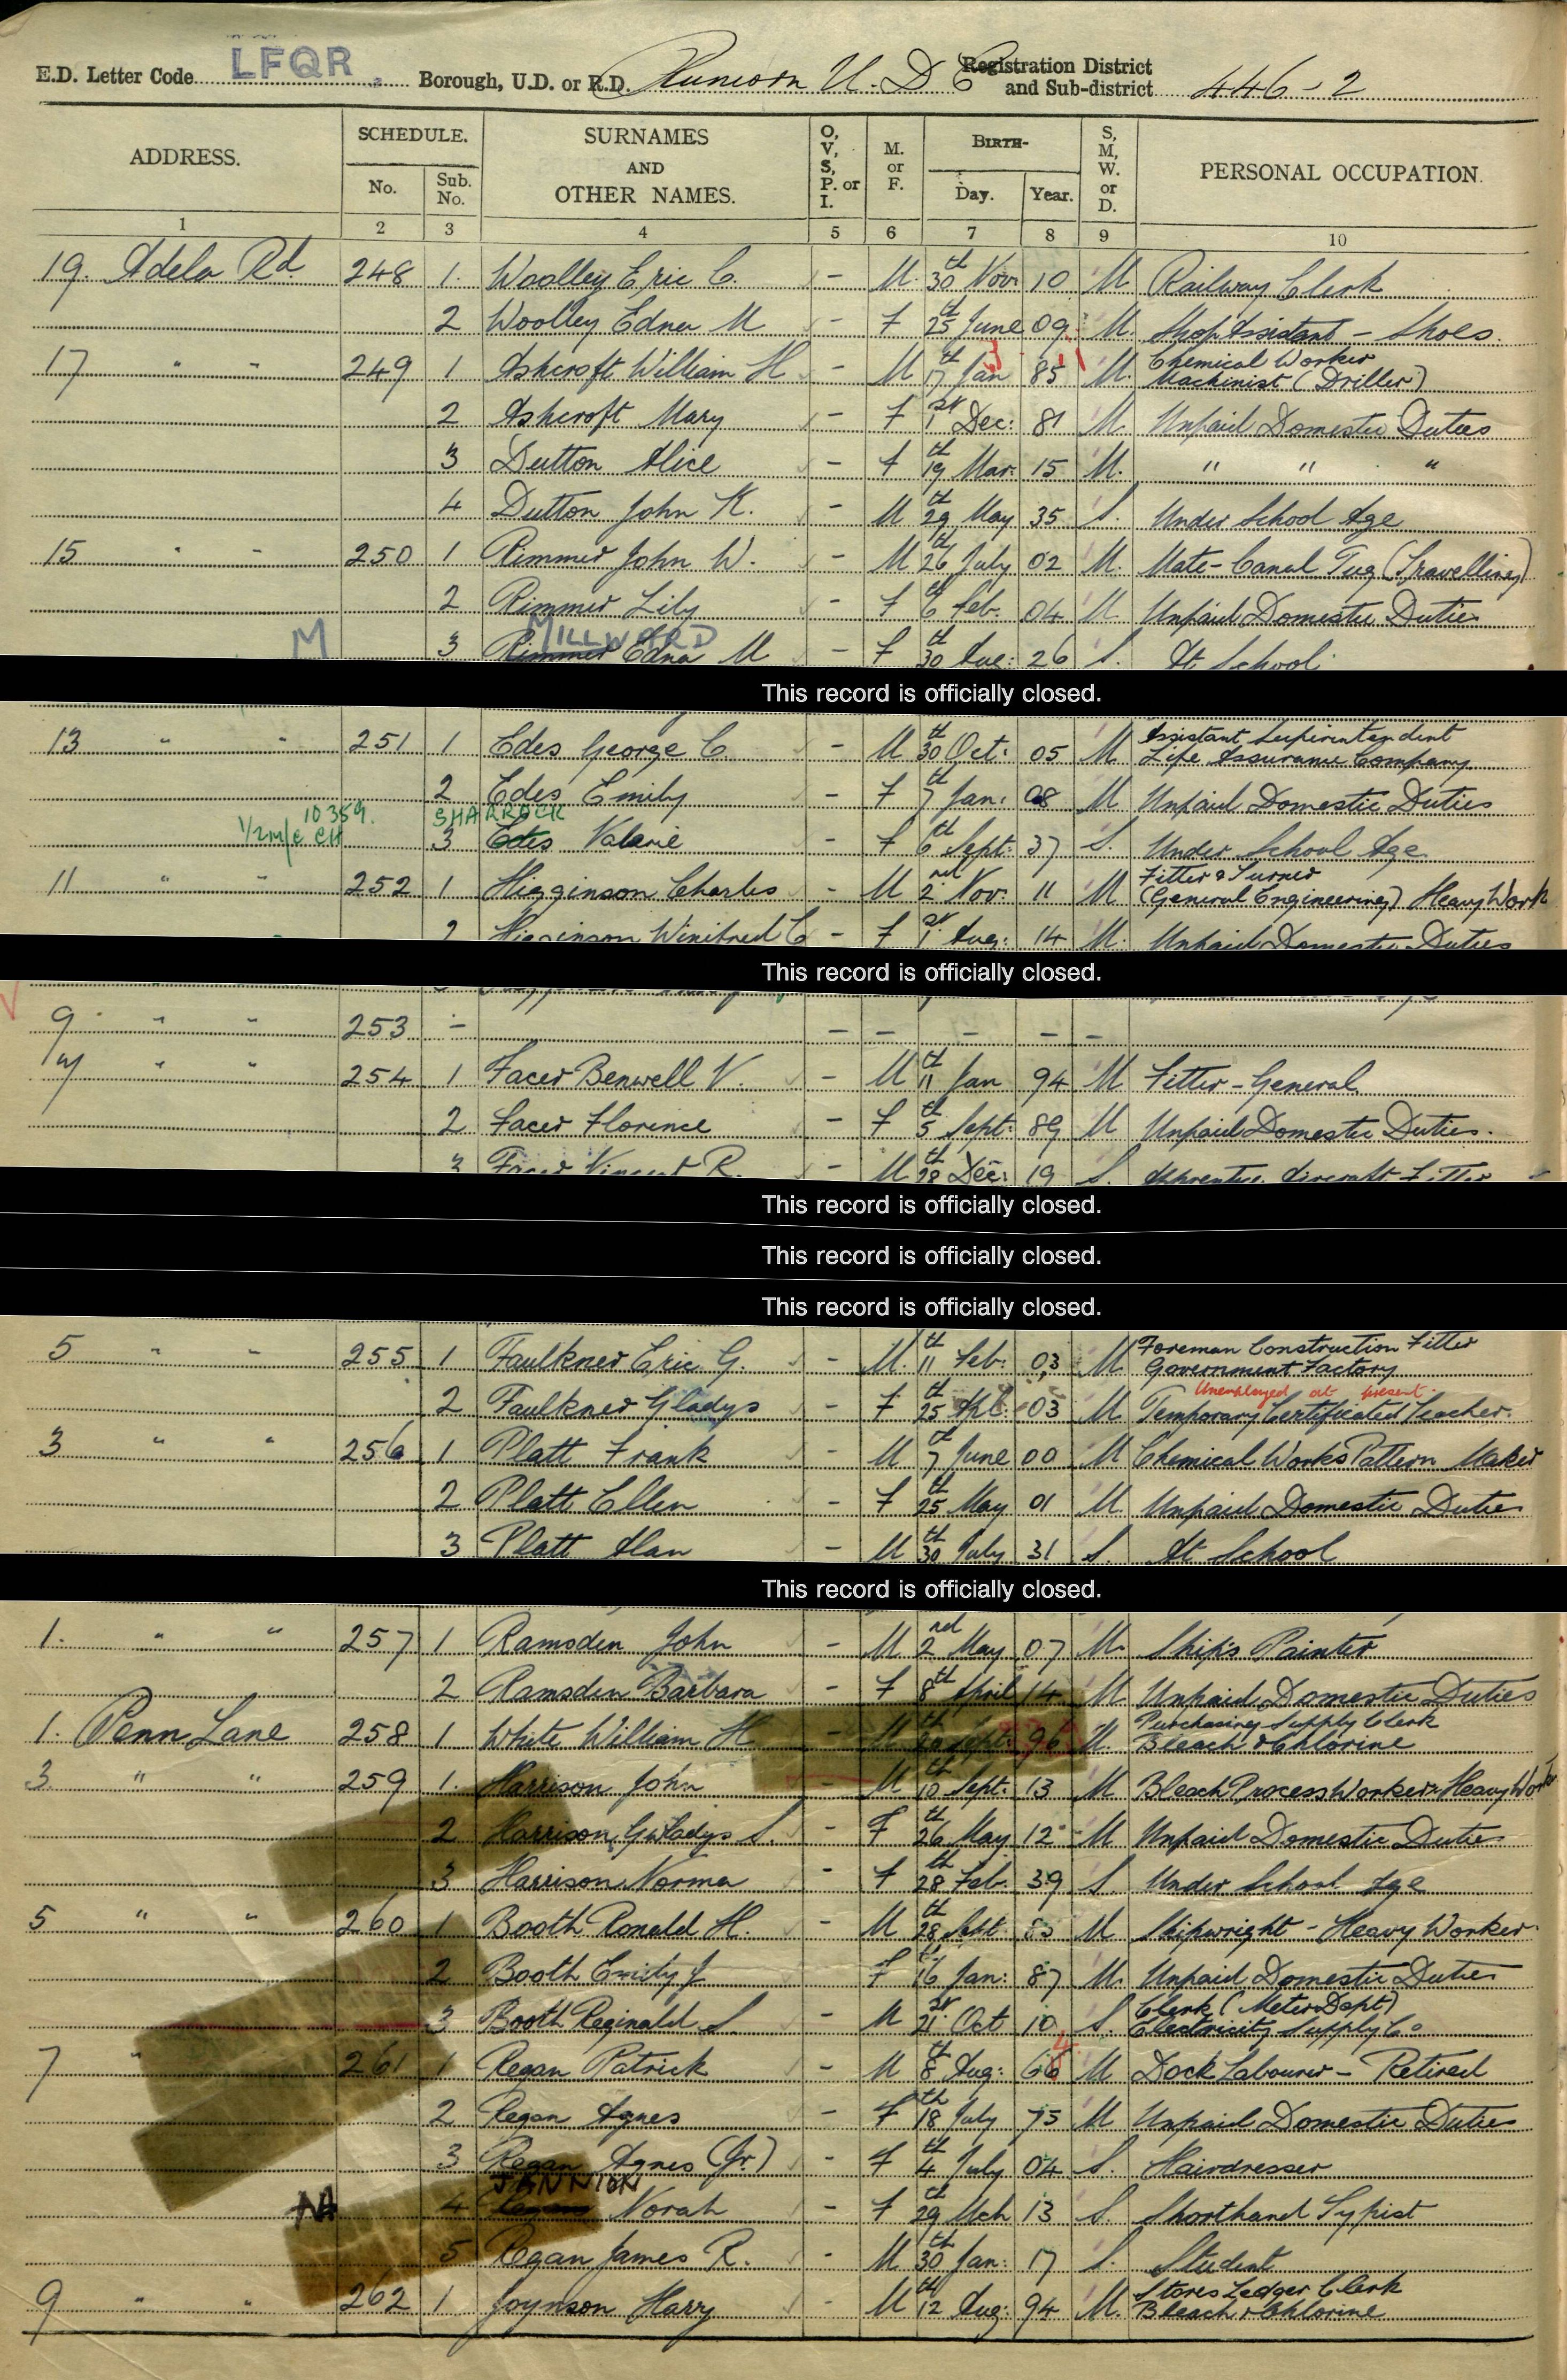 E.D. Letter Code LFQR. Borough, U.D. or R.D. Runcorn U.D.C Registration District and Sub-district 446-2
ADDRESS. SCHEDULE. No. Sub. No. SURNAMES AND OTHER NAMES. O, V, S, P. or I. M. or F. BIRTH- Day. Year. S, M, W. or D. PERSONAL OCCUPATION.
1 2 3 4 5 6 7 8 9 10
19. Adela Rd. 248 1. Woolley Eric C. - M. 30th Nov: 10 M Railway Clerk
2 Woolley Edna M - F 25th June 09 M. Shop Assistant - Shoes.
17 " " 249 1 Ashcroft William H - M 17th Jan 85 M Chemical Worker Machinist (Driller)
2 Ashcroft Mary - F 1st Dec: 81 M Unpaid Domestic Duties
3 Dutton Alice - F 19th Mar: 15 M. " " "
4 Dutton John K. - M 29th May 35 S. Under School Age
15 " " 250 1 Rimmer John W. - M 26th July 02 M. Mate - Canal Tug (Travelling)
2 Rimmer Lily - F 6th Feb. 04 M Unpaid Domestic Duties
M MILLWARD
3 Rimmer Edna M - F 30th Aug: 26 S. At School
This record is officially closed.
13 " " 251 1 Edes George C. - M 30th Oct: 05 M Assistant Superintendent Life Assurance Company
2 Edes Emily - F 7th Jan: 08 M Unpaid Domestic Duties
10359. SHARROCK
3 Edes Valerie - F 6th Sept: 37 S. Under School Age
11 " " 252 1 Higginson Charles - M 2nd Nov: 11 M Fitter & Turner (General Engineering) Heavy Work
2 Higginson Winifred C - F 1st Aug: 14 M. Unpaid Domestic Duties
This record is officially closed.
9 " " 253 - - - - - -
7 " " 254 1 Facer Benwell V. - M 11th Jan 94 M Fitter - General
2 Facer Florence - F 5th Sept: 89 M Unpaid Domestic Duties.
3 Facer Vincent R. - M 28th Dec: 19 S. Apprentice Aircraft Fitter
This record is officially closed.
This record is officially closed.
This record is officially closed.
5 " " 255 1 Faulkner Eric G. - M. 11th Feb: 03 M Foreman Construction Fitter Government Factory
Unemployed at present
2 Faulkner Gladys - F 25th Apl: 03 M Temporary Certificated Teacher.
3 " " 256 1 Platt Frank - M 7th June 00 M Chemical Works Pattern Maker
2 Platt Ellen - F 25th May 01 M. Unpaid Domestic Duties
3 Platt Alan - M 30th July 31 S. At School
This record is officially closed.
1. " " 257 1 Ramsden John - M 2nd May 07 M. Ship's Painter
2 Ramsden Barbara - F 8th April 14 M Unpaid Domestic Duties
1. Penn Lane 258 1 White William H - M Sept: 96 M. Purchasing Supply Clerk Bleach & Chlorine
3 " " 259 1. Harrison John - M 10th Sept: 13 M Bleach Process Worker: Heavy Work
2 Harrison, Gwladys S. - F 26th May 12 M Unpaid Domestic Duties
3 Harrison Norma - F 28th Feb. 39 S. Under School Age
5 " " 260 1 Booth Ronald H. - M 28th Sept: M Shipwright - Heavy Worker.
2 Booth Emily J - F 16th Jan: 87 M. Unpaid Domestic Duties
3 Booth Reginald S. - M 21st Oct 10 S. Clerk (Meter Dept) Electricity Supply Co
7 " 261 1 Regan Patrick - M 8th Aug: 66 M Dock Labourer - Retired
2 Regan Agnes - F 18th July 75 M Unpaid Domestic Duties
3 Regan Agnes (Jr.) - F 4th July 04 S. Hairdresser
JANNION
4 Regan Norah - F 29th Mch 13 S. Shorthand Typist
5 Regan James R. - M 30th Jan: 17 S. Student
9 " " 262 1 Joynson Harry - M 12th Aug: 94 M. Stores Ledger Clerk Bleach & Chlorine